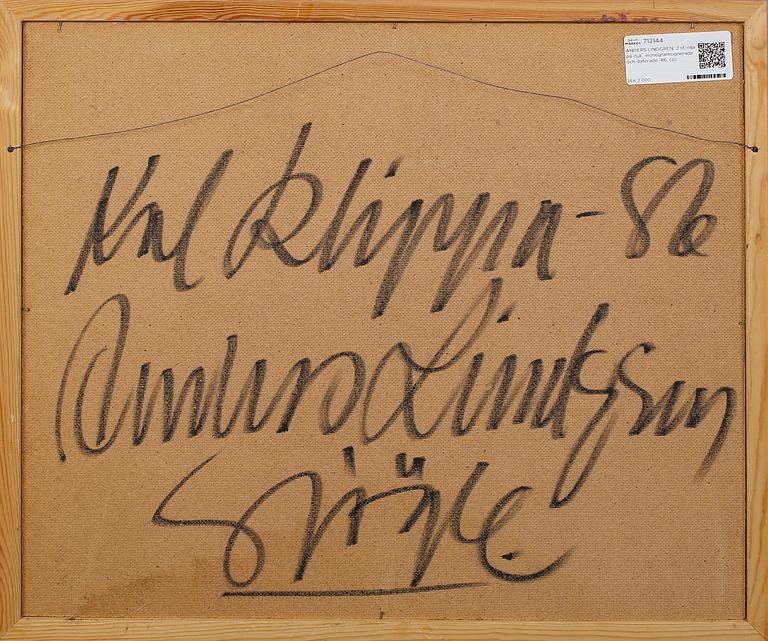 MARKET 712144
ANDERS LINDGREN, 2 st, olja
på duk, monogramsignerade
och daterade -86. (d)
SEK 2 000
Kal Klippa-86
Anders Lindgren